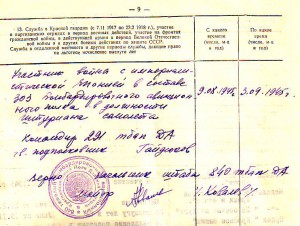 — 9 —
13. Служба в Красной гвардии (с 7.11 1917 по 23.2 1918 г.), участие
в партизанских отрядах в период боевых действий, участие на фронтах
гражданской войны, в действующей армии в период Великой Отечествен-
ной войны и в других боевых действиях по защите СССР.
Служба в отдаленной местности и другие периоды службы, дающие право
на льготное исчисление выслуги лет
С какого
времени
По какое
время
Участник войны с империалис-
тической Японией в составе
303 бомбардировочного авиацион-
ного полка в должности
штурмана самолета
9.08.1945 3.09.1945г.
Командир 221 тбап ДА
гв. подполковник Гайдюков
Верно: начальник штаба 840 тбап ДА
майор Ковалев